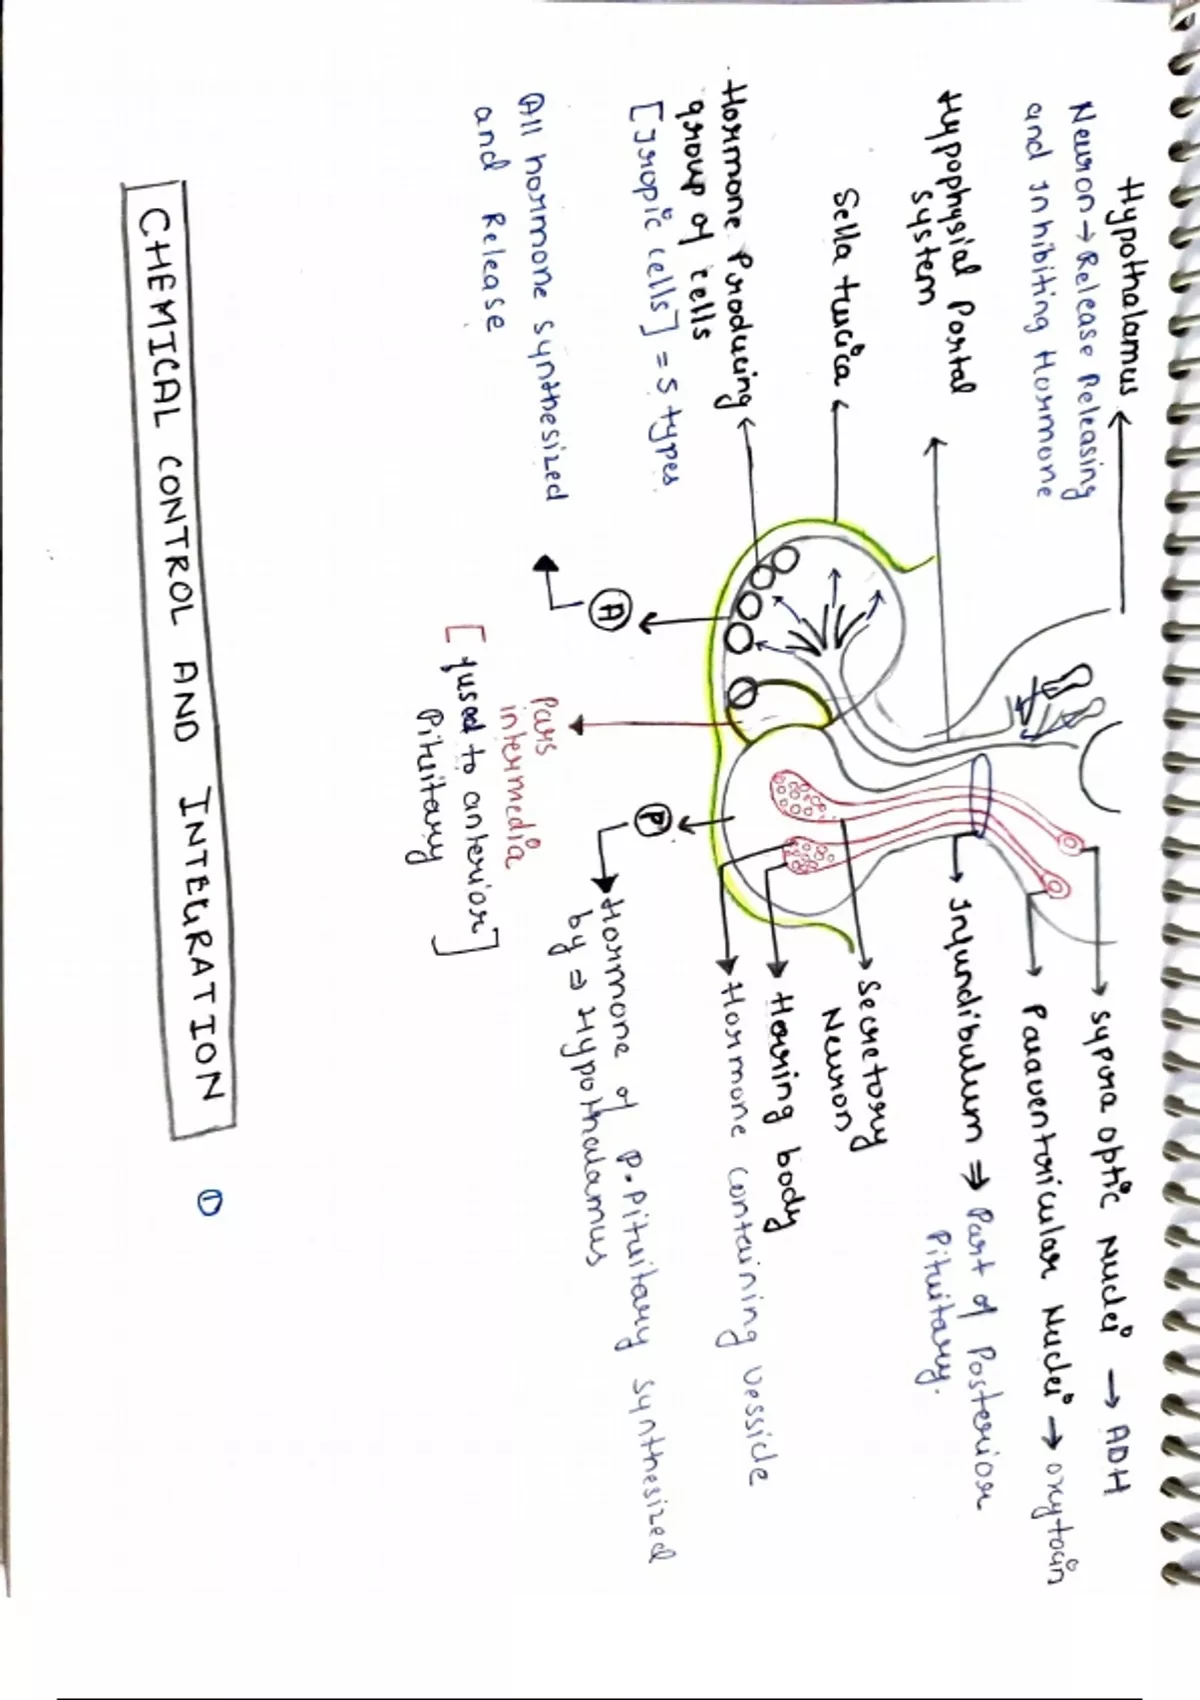 Hypothalamus
Neuron → Release Releasing
and Inhibiting Hormone
Hypophysial Portal
system
Sella tucica
Hormone Producing
group of cells
[Tropic cells] = 5 types
All hormone synthesized
and Release
A
Pars
intermedia
[fused to anterior]
Pituitary
P
Sypora optic Nuclei → ADH
Paraventoricular Nuclei → oxytocin
Infundibulum ⇒ Part of Posterior
Pituitary.
Secretory
Neuron
Herring body
Hormone containing vessicle
Hormone of P.Pituitary synthesized
by ⇒ Hypothalamus
CHEMICAL CONTROL AND INTEGRATION
1